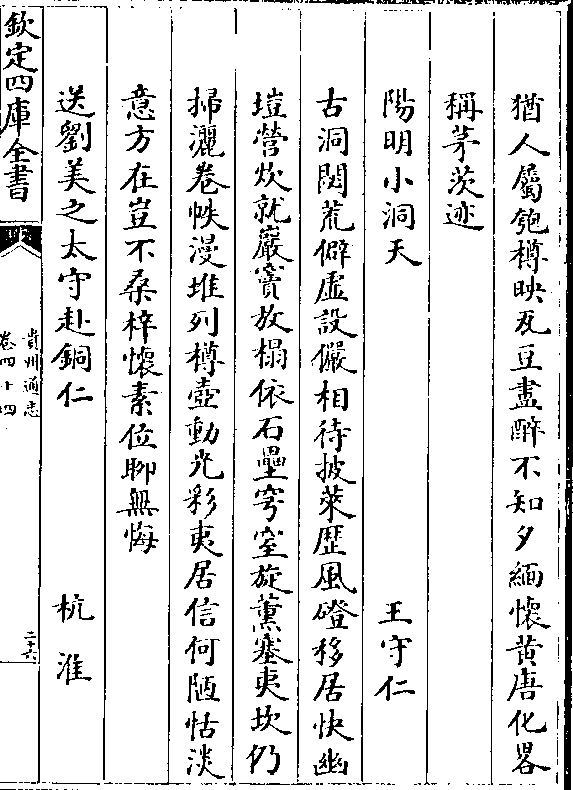 猶人屬匏樽映瓦豆盡醉不知夕緬懷黄唐化畧
稱茅茨迹
陽明小洞天　王守仁
古洞閟荒僻虛設儼相待披萊歴風磴移居快幽
塏營炊就巖竇放榻依石壘穹窒旋薰塞夷坎仍
掃灑卷帙漫堆列樽壺動光彩夷居信何陋恬淡
意方在豈不桑梓懷素位聊無悔
送劉美之太守赴銅仁　杭淮
欽定四庫全書
貴州通志
卷四十四
二十六